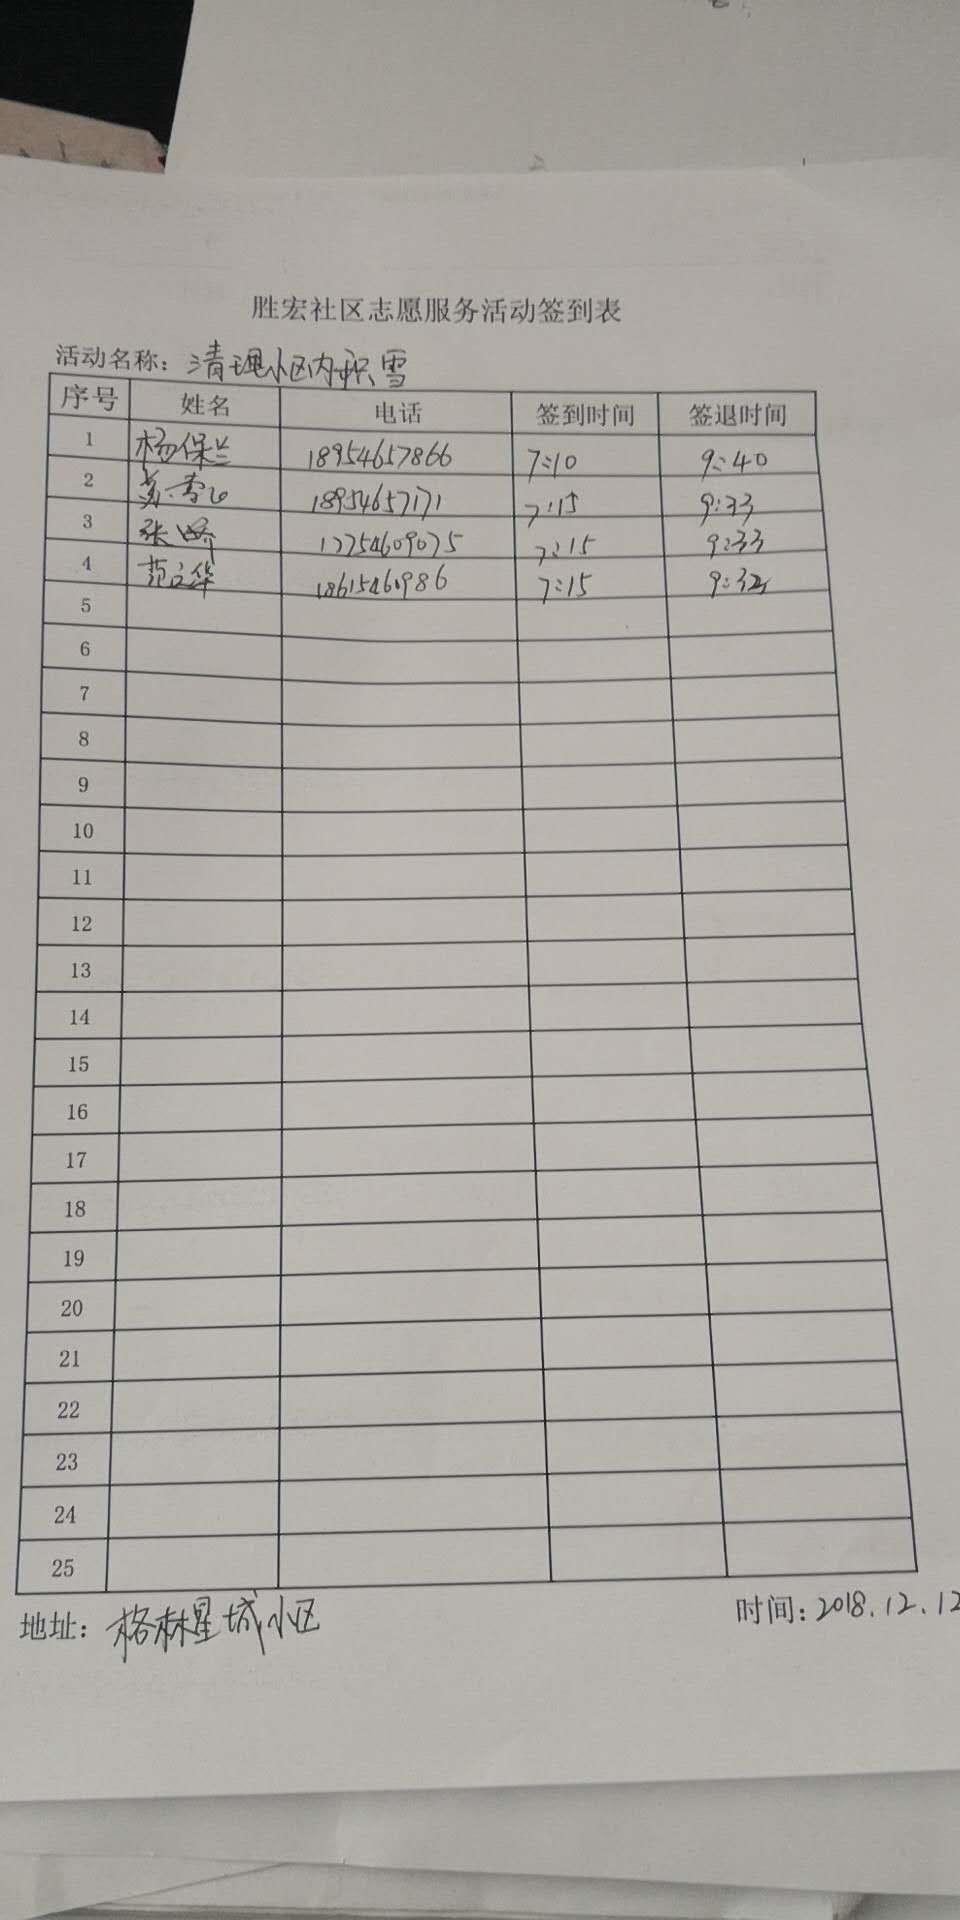 胜宏社区志愿服务活动签到表
活动名称：清理小区内积雪
序号 姓名 电话 签到时间 签退时间
1 杨保兰 18954657866 7:10 9:40
2 18954657171 7:15 9:33
3 张 7:15 9:33
4 范立华 7:15 9:32
5
6
7
8
9
10
11
12
13
14
15
16
17
18
19
20
21
22
23
24
25
地址：格林星城小区 时间：2018.12.12